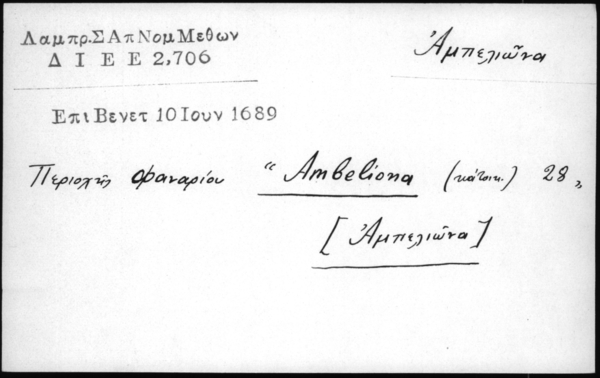 Λαμπρ.ΣΑπΝομΜεθων
Ἀμπελιῶνα
Δ Ι Ε Ε 2,706
ΕπιΒενετ 10Ιουν 1689
Περιοχῆς Φαναρίου "Ambeliona (κάτοικ.) 28"
[Ἀμπελιῶνα]